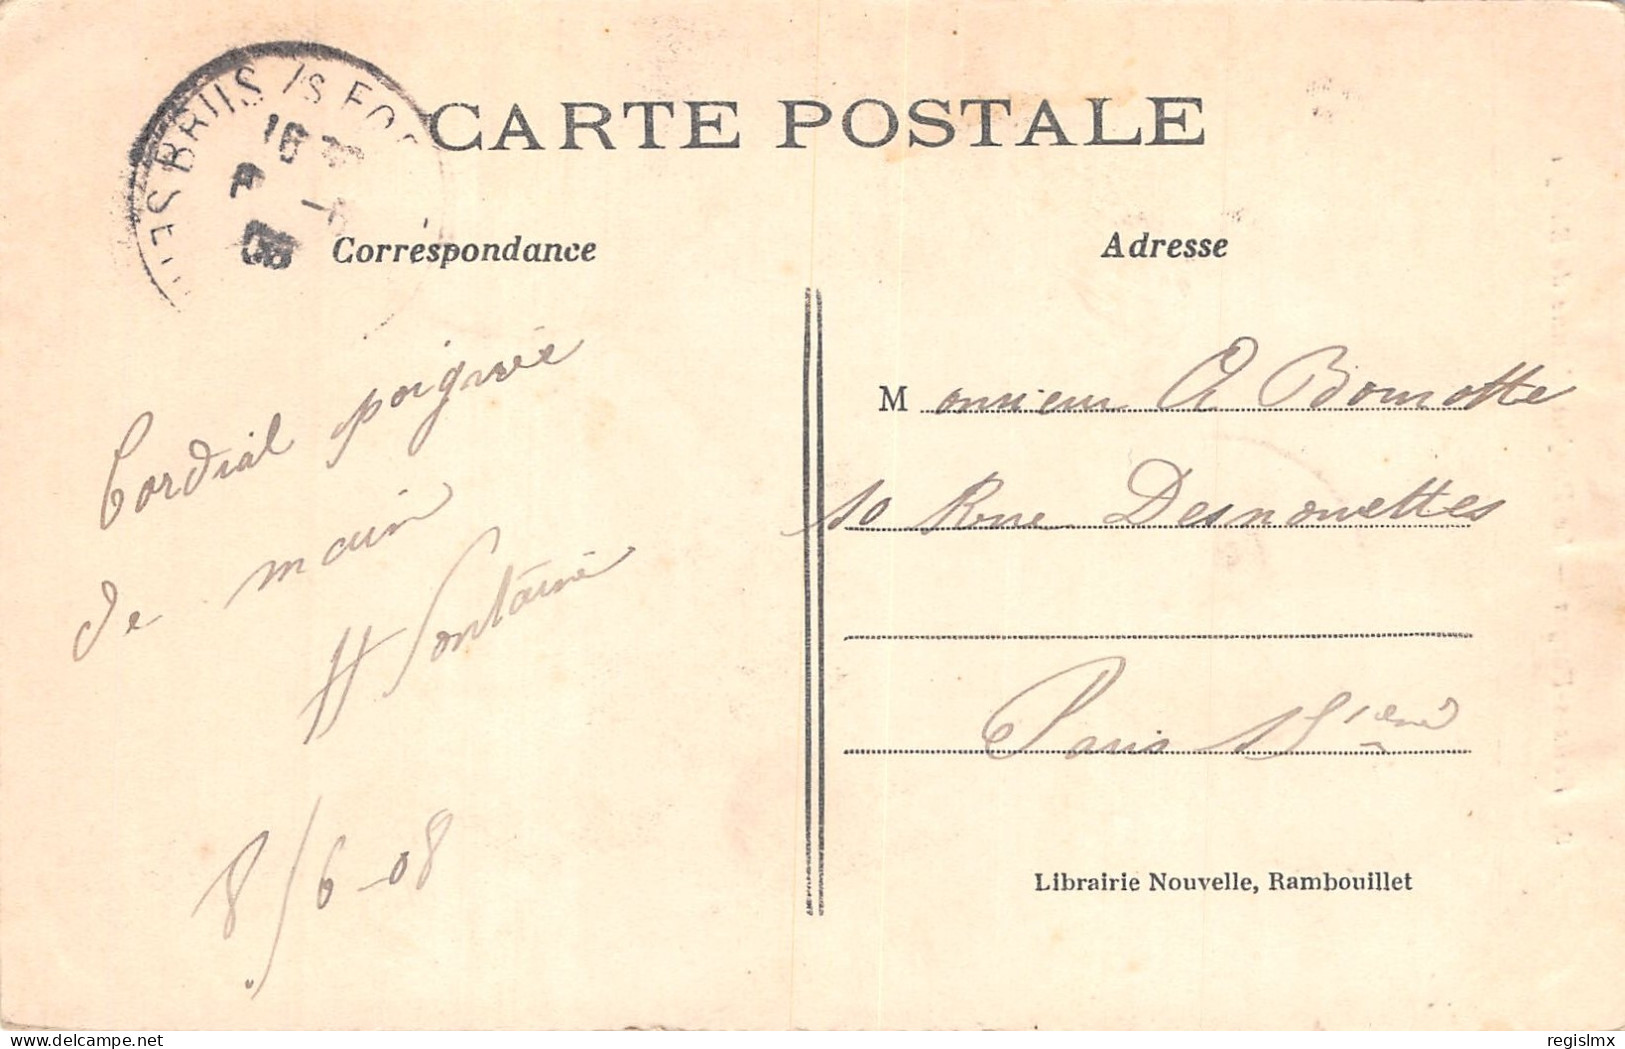 CARTE POSTALE
Correspondance
Cordial poignée
de main
H Fontaine
8/6-08
Adresse
Monsieur A Bounotte
10 Rue Desnouettes
Paris 15ième
Librairie Nouvelle, Rambouillet
delcampe.net
regislmx